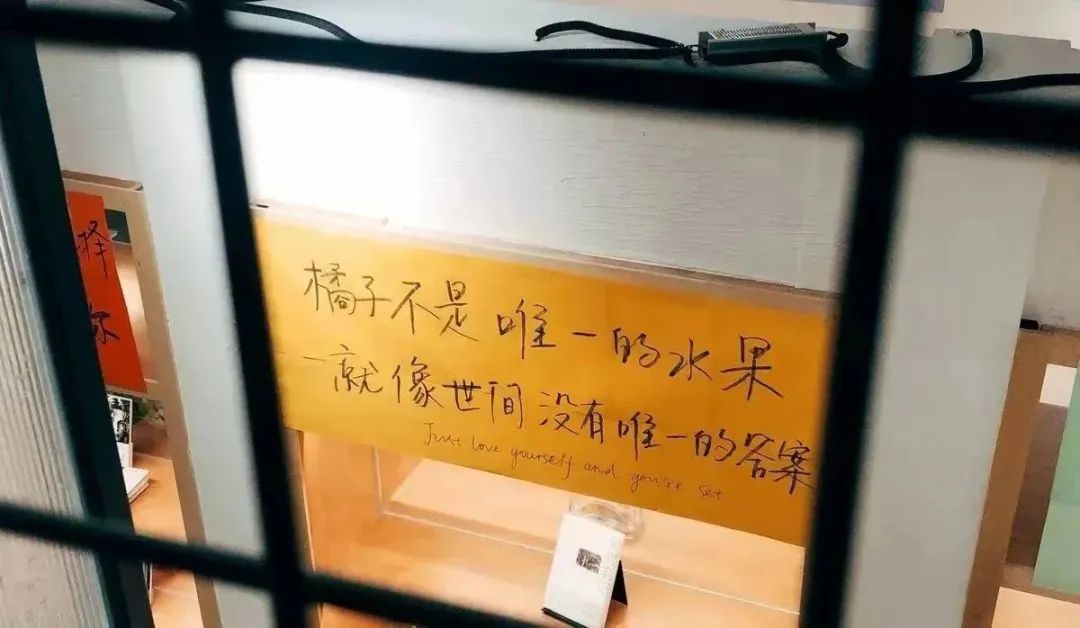 择
你
橘子不是唯一的水果
一就像世间没有唯一的答案
Just love yourself and you're set